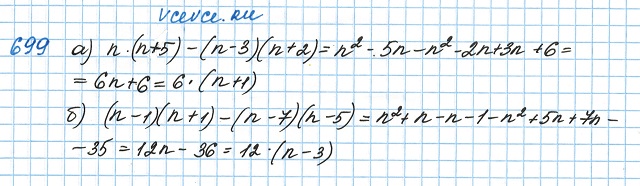 vcevce.ru
699 а) n·(n+5)-(n-3)(n+2)=n²-5n-n²-2n+3n+6=
=6n+6=6·(n+1)
б) (n-1)(n+1)-(n-7)(n-5)=n²+n-n-1-n²+5n+7n-
-35=12n-36=12·(n-3)